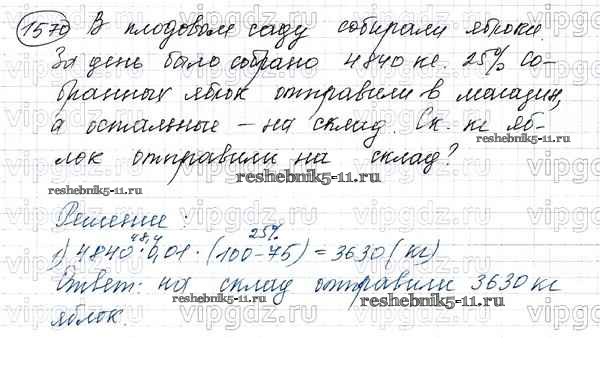 1570 В плодовом саду собирали яблоки.
За день было собрано 4840 кг. 25% со-
бранных яблок отправили в магазин,
а остальные – на склад. Ск. кг яб-
лок отправили на склад?
reshebnik5-11.ru
reshebnik5-11.ru
reshebnik5-11.ru
Решение:
48,4 25%
1) 4840 · 0,01 · (100–75) = 3630 (кг)
Ответ: на склад отправили 3630 кг
reshebnik5-11.ru
reshebnik5-11.ru
яблок.
vipgdz.ru